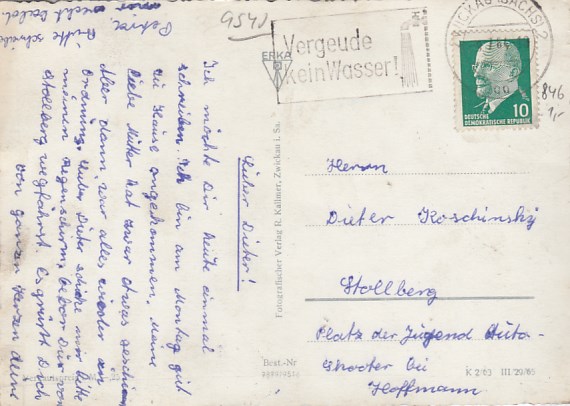 9541
ERKA
Vergeude
kein Wasser!
ZWICKAU (SACHS) 2
10
DEUTSCHE
DEMOKRATISCHE REPUBLIK
846
1,-
Lieber Dieter!
Ich möchte Dir heute einmal
schreiben. Ich bin am Montag gut
zu Hause angekommen. Meine
liebe Mutter hat zwar etwas geschien
Aber dann war alles wieder in
Ordnung. Lieber Dieter schicke mir bitte
meinen Regenschirm, bevor Du von
Stollberg wegfährst. Es grüßt Dich
von ganzen Herzen deine
Bitte schreibe recht bald.
Fotografischer Verlag R. Kallmer, Zwickau i. Sa.
Best.-Nr
Herrn
Dieter Koschinsky
Stollberg
Platz der Jugend Auto-
skooter bei
Hoffmann
K 2/63 III/29/65